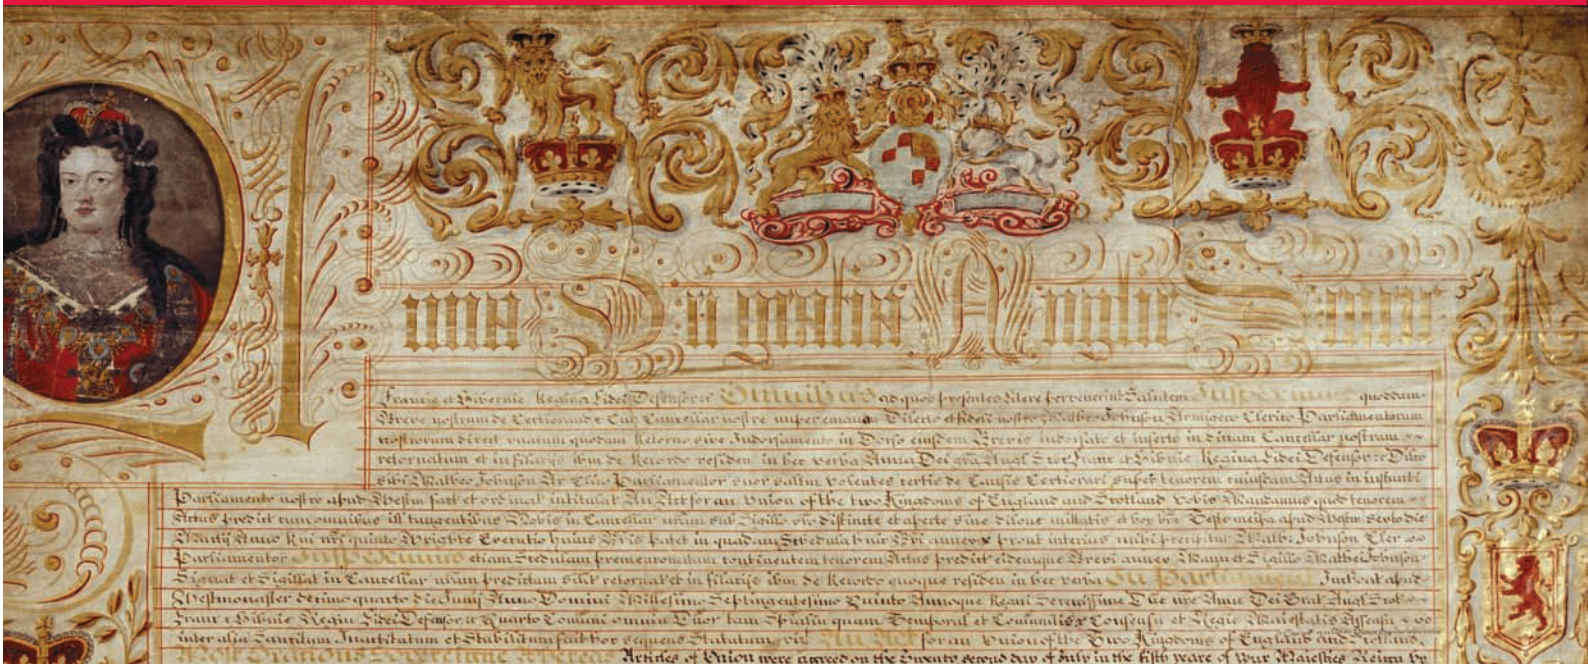 Anna Dei gratia Anglie Scocie
Francie et Hibernie Regina Fidei Defensor etc Omnibus ad quos presentes litere pervenerint Salutem Inspeximus quoddam
Breve nostrum de Certiorand e Cur Cancellar nostre nuper eman Dilecto et fideli nostro Matheo Johnson Armigero Clerico Parliamentorum
nostrorum direct unacum quodam Retorno sive Indorsamento in Dorso eiusdem Brevis indorsato et in dictam Cancellar nostram
retornatum et in filaciis ibm de Recordo residen in hec verba Anna Dei gra Angl Scot Franc et Hibnie Regina Fidei Defensor etc Dilco
sibi Matheo Johnson Ar Clico Parliamentor Volentes certis de Causis Certiorari super tenorem cuiusdam Actus in
Parliamento nostro apud Westm fact et ordinat intitulat An Act for an Union of the two Kingdoms of England and Scotland Vobis Mandamus quod tenorem
Actus predict cum omnibus ill tangentibus Nobis in Cancellar nram sub Sigillo vro distincte et aperte sine dilone mittatis et hoc bre Teste meipa apud Westm Sexto die
Martij Anno Rni nri quinto Wrighte Executio huius Bris patet in quadam Schedula huic Bri annex prout interius mihi precipitur Math Johnson Cler
Parliamentor Inspeximus etiam Scedulam premencionat continentem tenorem Actus predict eidemque Brevi annex Manu et Sigillo Mathei Johnson
Signat et Sigillat in Cancellar nram predictam silit retornat et in filaciis ibm de Recordo quoque residen in hec verba In Parliament Inchoat apud
Westmonaster decimo quarto die Junij Anno Domini Millesimo Septingentesimo Quinto Annoque Regni Serenissime Dne nre Anne Dei Grat Angl Scot
Franc et Hibnie Regin Fidei Defensor etc Quarto Comuni omnium Dnor tam Spualm quam Temporal et Comunium Consensu et Regie Maiestatis Assensu
inter alia Sancitum Inactitatum et Stabilitum fuit hoc sequens Statutum vizt An Act for an Union of the Two Kingdoms of England and Scotland.
Most Gracious Sovereigne Whereas Articles of Union were agreed on the Twenty second day of July in the fifth yeare of Your Majesties Reign by